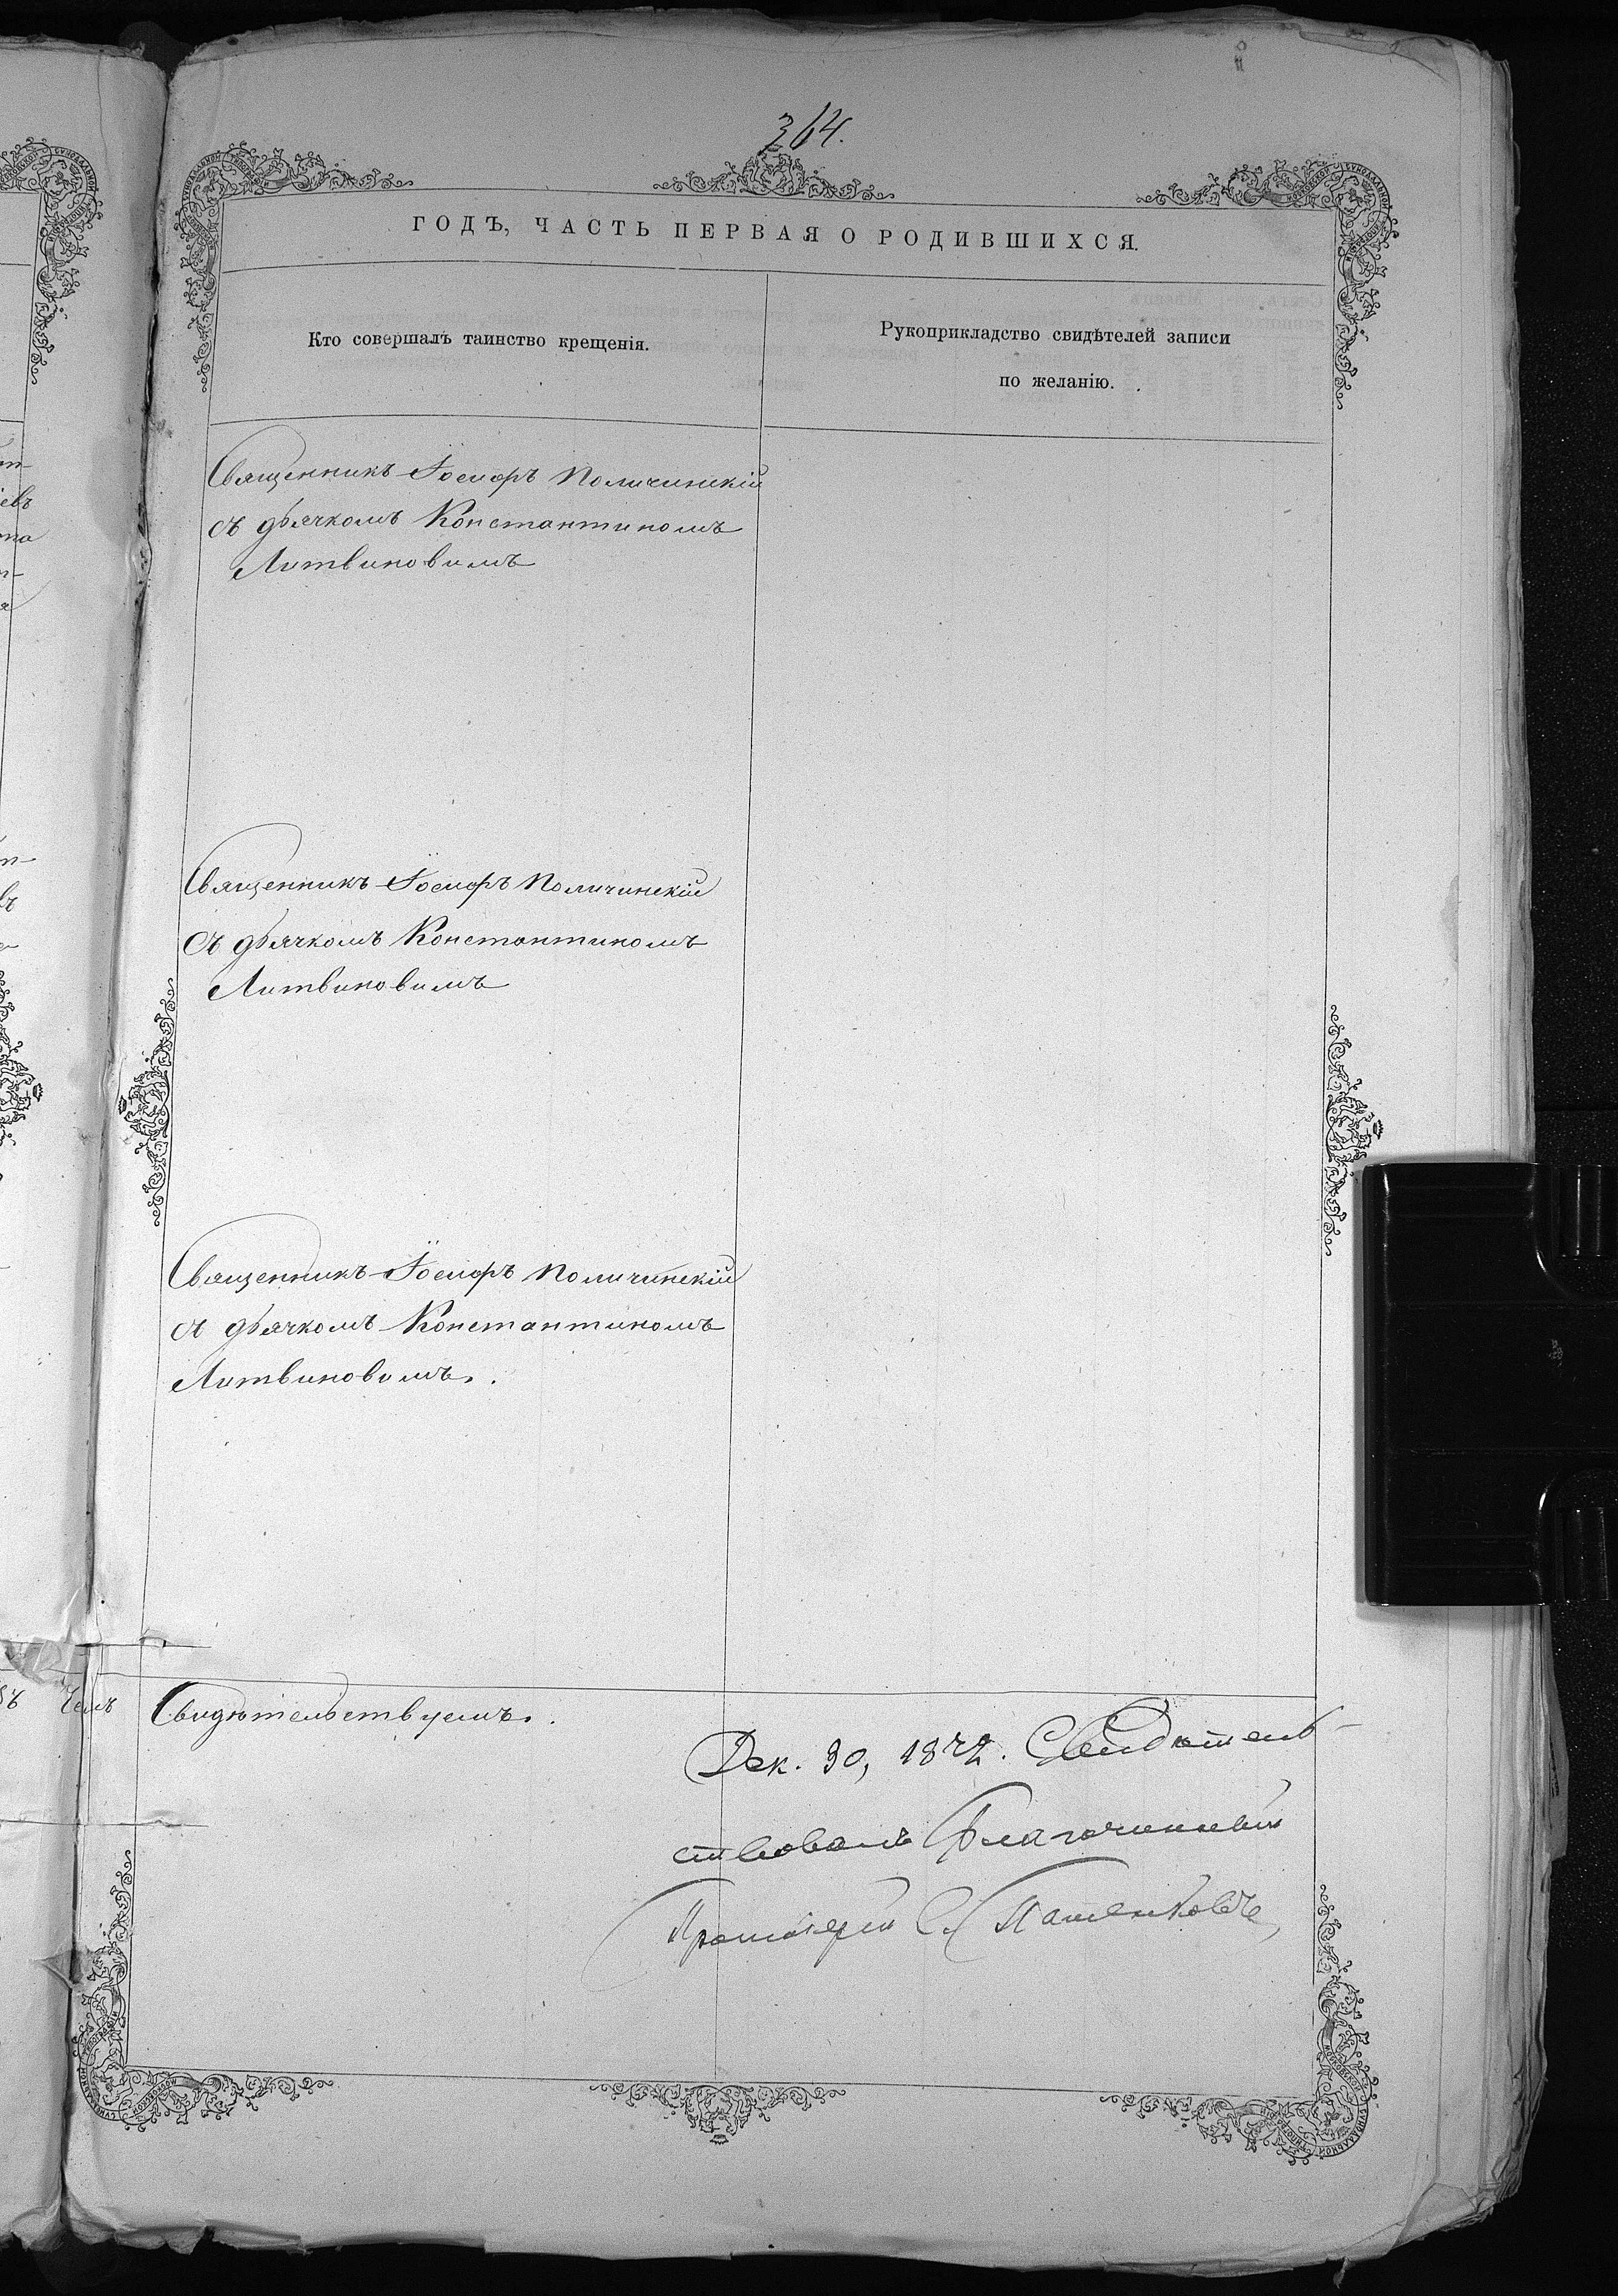 364.
ГОДЪ, ЧАСТЬ ПЕРВАЯ О РОДИВШИХСЯ.
Кто совершалъ таинство крещенія.
Рукоприкладство свидѣтелей записи
по желанію.
Священникъ Іосифъ Поличинскій
съ дьячкомъ Константиномъ
Литвиновимъ
Священникъ Іосифъ Поличинскій
съ дьячкомъ Константиномъ
Литвиновимъ
Священникъ Іосифъ Поличинскій
съ дьячкомъ Константиномъ
Литвиновимъ.
Свидѣтельствуемъ.
Дек. 30, 1872. Свидѣтель-
ствовалъ Благочинный
Протоіерей